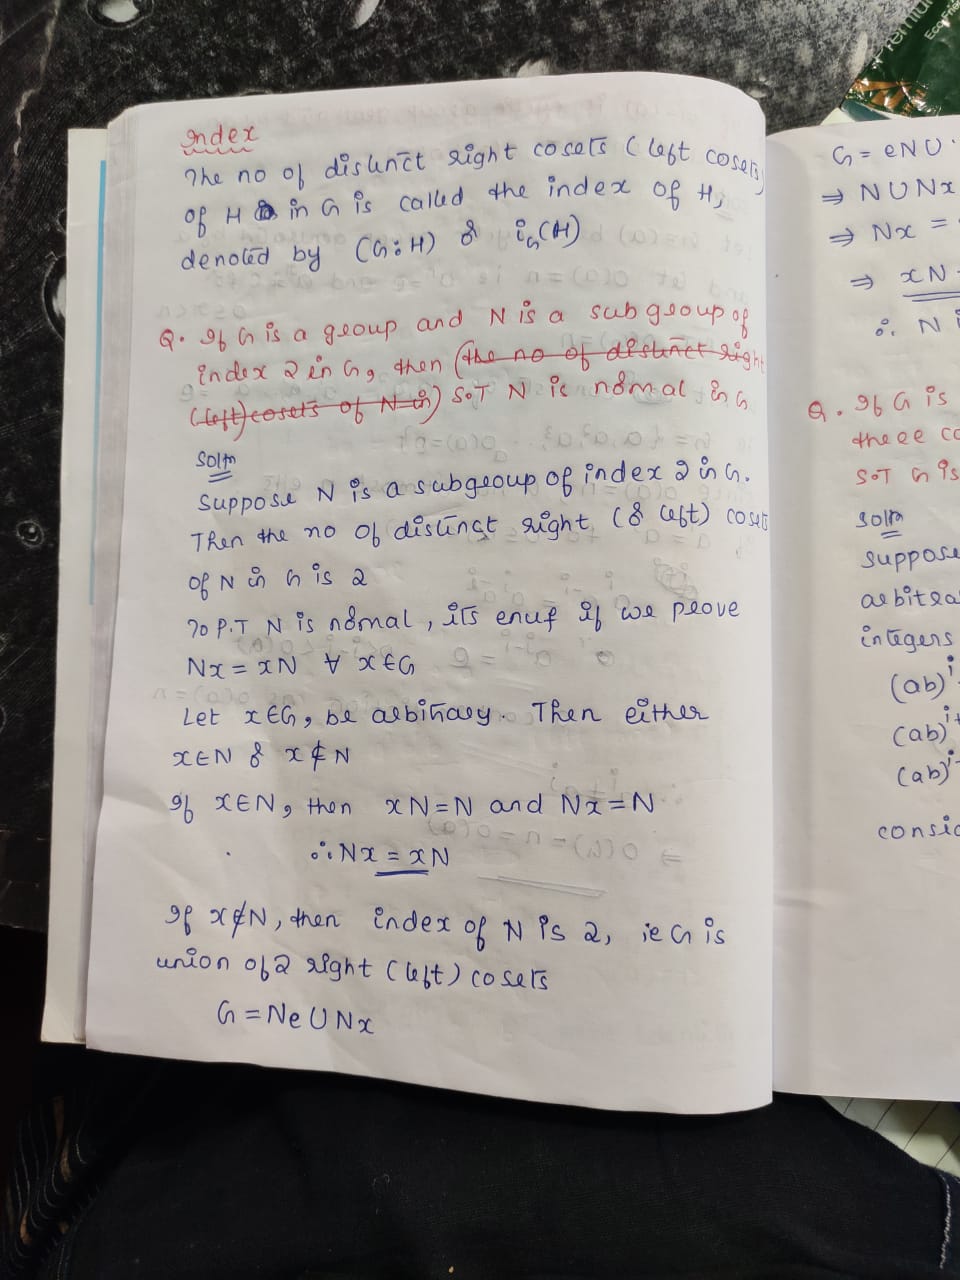 Index
The no of distinct right cosets (left cosets)
of H in G is called the index of H,
denoted by (G:H) or i_G(H)
Q. If G is a group and N is a subgroup of
index 2 in G, then (the no of distinct right
(left) cosets of N in) S.T N is normal in G
Soln
Suppose N is a subgroup of index 2 in G.
Then the no of distinct right (or left) cosets
of N in G is 2
To P.T N is normal, its enuf if we prove
Nx = xN ∀ x∈G
Let x∈G, be arbitrary. Then either
x∈N or x∉N
If x∈N, then xN=N and Nx=N
∴ Nx = xN
If x∉N, then index of N is 2, ie G is
union of 2 right (left) cosets
G = Ne ∪ Nx
G = eN ∪
⇒ N ∪ Nx
⇒ Nx =
⇒ xN
∴ N
Q. If G is
three co
S.T G is
Soln
Suppose
arbitra
integers
(ab)^i
(ab)^i+
(ab)^i+
consid
Premium